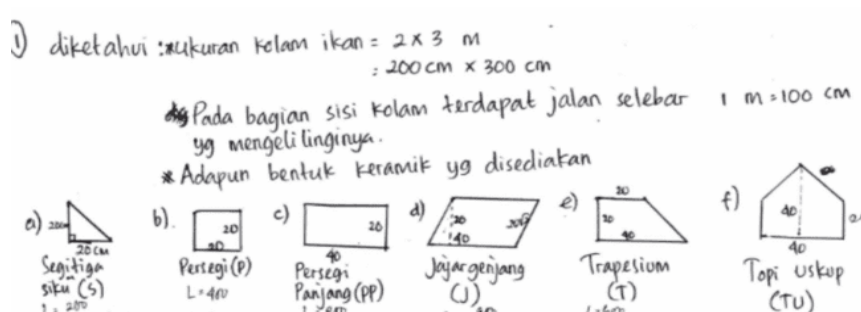 ① diketahui : *ukuran kolam ikan = 2 × 3 m
= 200 cm × 300 cm
Pada bagian sisi kolam terdapat jalan selebar 1 m = 100 cm
yg mengelilinginya.
* Adapun bentuk keramik yg disediakan
a) 20 cm
Segitiga
siku (S)
L = 200
b) 20 20
Persegi (P)
L = 400
c) 20 40
Persegi
Panjang (PP)
d) 20 40
Jajargenjang
(J)
e) 20 20 40
Trapesium
(T)
f) 40 40
Topi uskup
(TU)